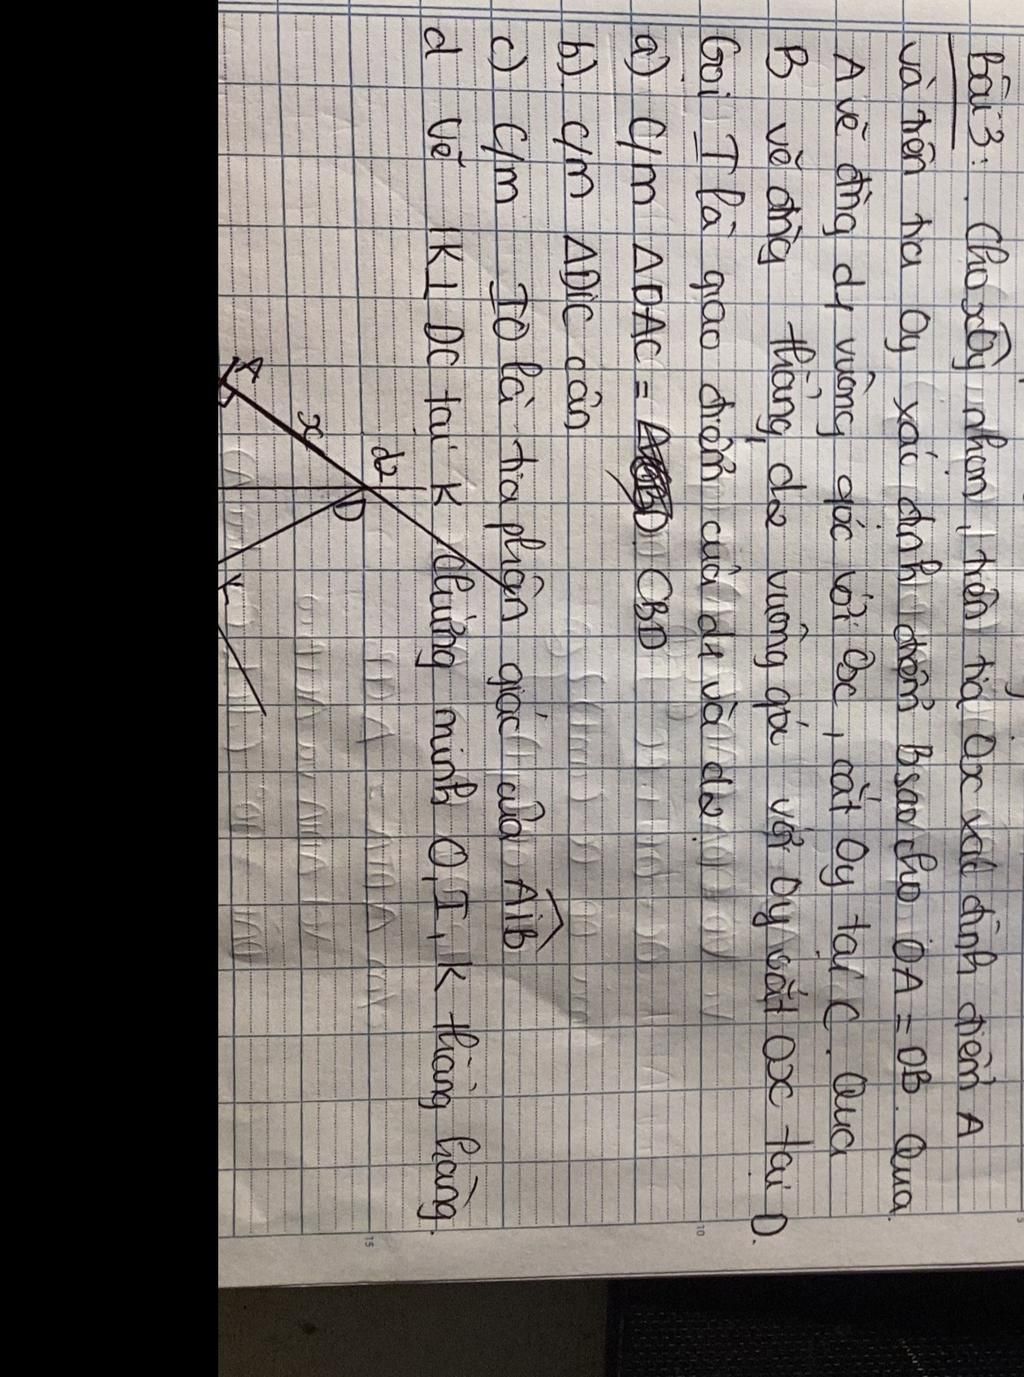 Bài 3: Cho xOy nhọn, trên tia Ox xác định điểm A
và trên tia Oy xác định điểm B sao cho OA = OB. Qua
A vẽ đng d1 vuông góc với Ox, cắt Oy tại C. Qua
B vẽ đng thẳng d2 vuông góc với Oy cắt Ox tại D.
Gọi I là giao điểm của d1 và d2.
a) C/m ΔOAC = CBD
b). C/m ΔDIC cân
c) C/m IO là tia phân giác của AIB
d Vẽ IK⊥DC tại K chứng minh O, I, K thẳng hàng.
d2
D
x
A